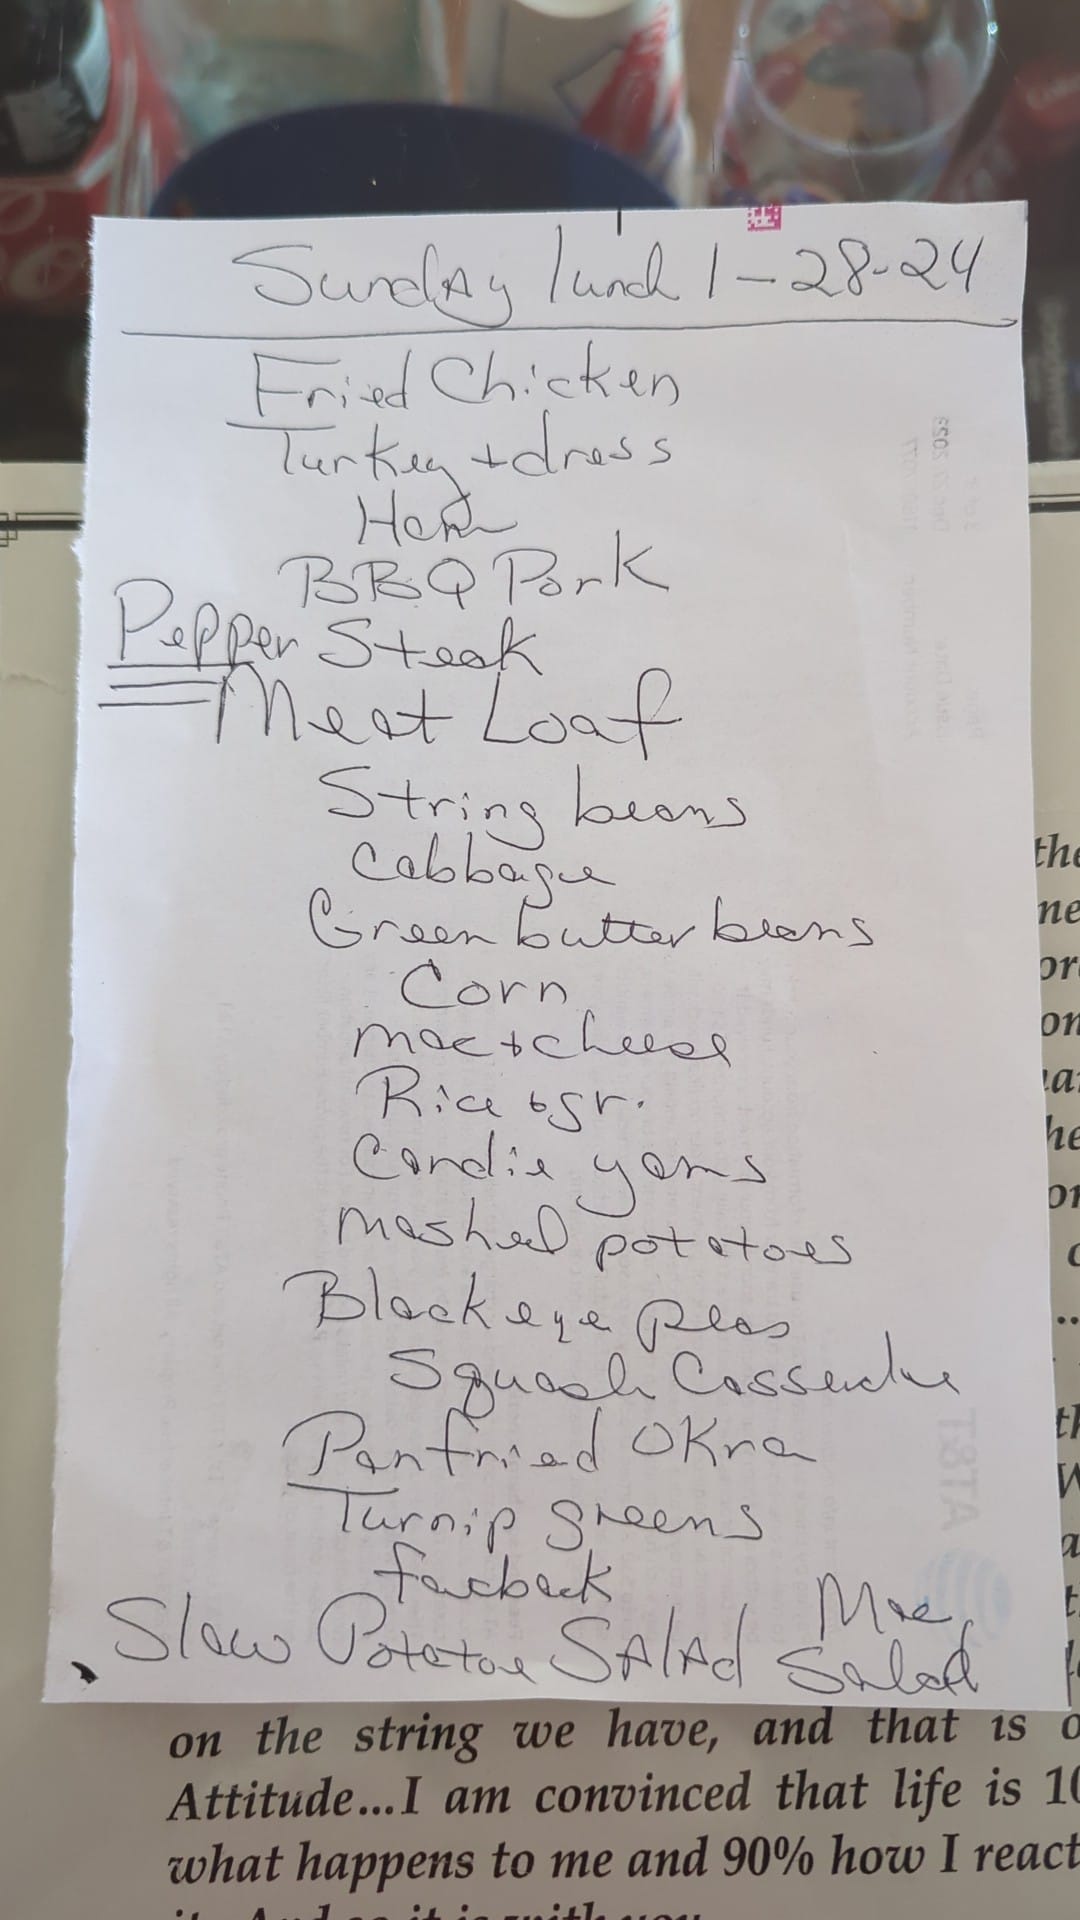 Sunday lunch 1-28-24
Fried Chicken
Turkey + dress
Ham
BBQ Pork
Pepper Steak
Meat Loaf
String beans
Cabbage
Green butter beans
Corn
mac + cheese
Rice + gr.
Candie yams
mashed potatoes
Blackeye peas
Squash Casserole
Panfried OKra
Turnip greens
fatback
Slaw Potatoe SAlAd Mac Salad
AT&T
the
on the string we have, and that is
Attitude...I am convinced that life is 10
what happens to me and 90% how I react